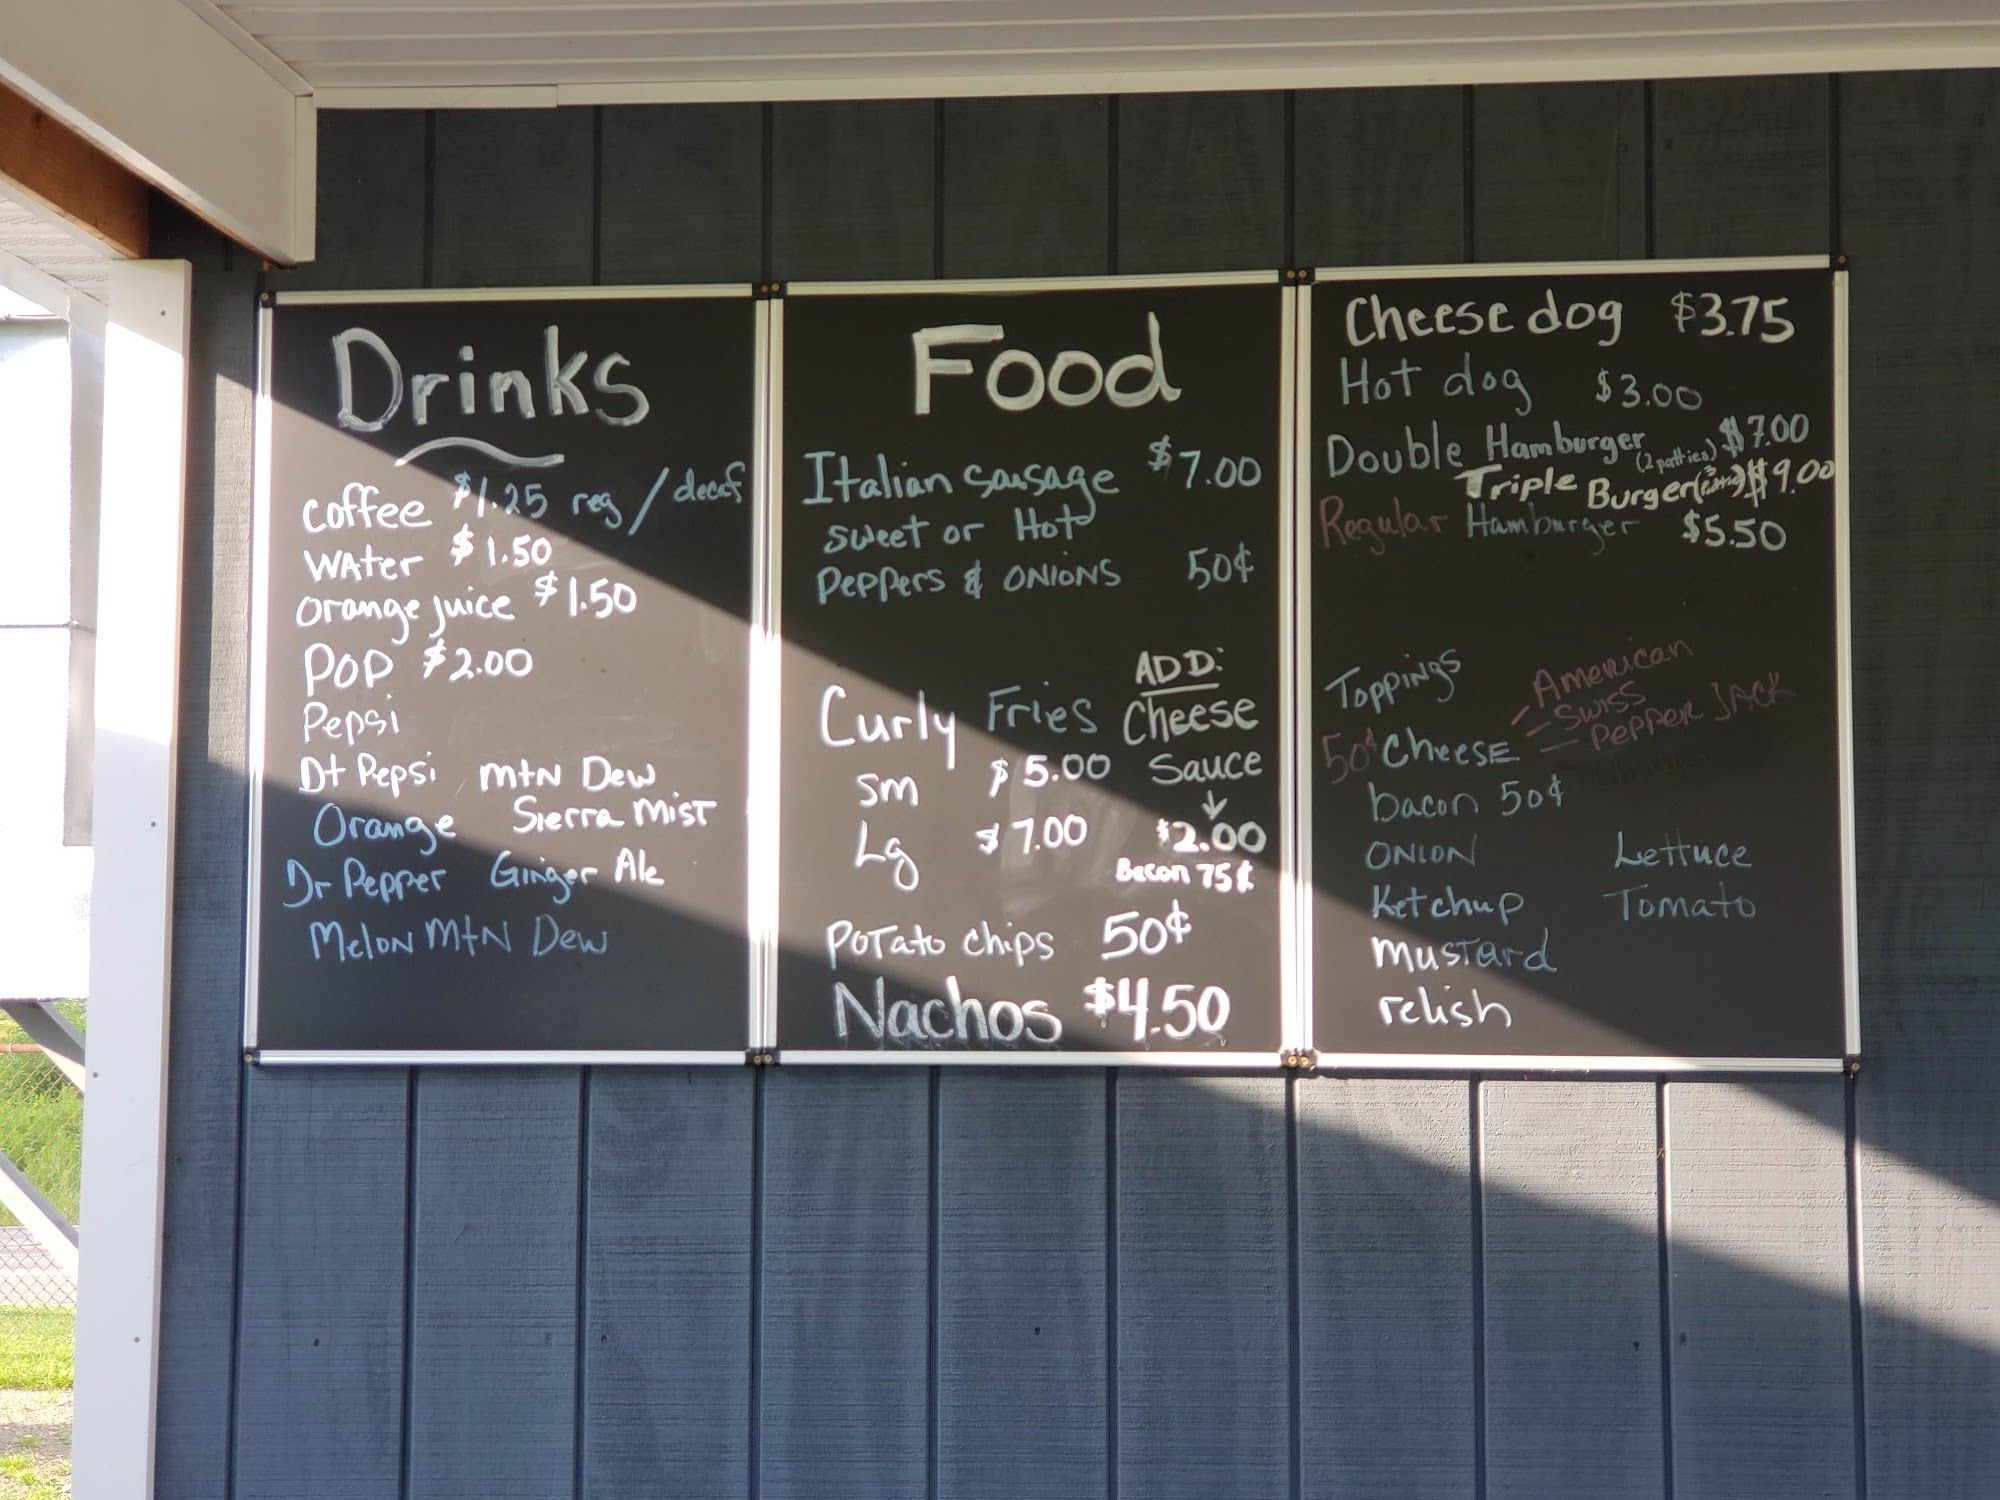 Drinks
coffee $1.25 reg / decaf
WAter $1.50
orange juice $1.50
POP $2.00
Pepsi
Dt Pepsi mtN Dew
Orange Sierra Mist
Dr Pepper Ginger Ale
Melon MtN Dew
Food
Italian sausage $7.00
sweet or Hot
Peppers & ONIONS 50¢
ADD:
Curly Fries Cheese
sm $5.00 Sauce
Lg $7.00 $2.00
Bacon 75¢
POTato chips 50¢
Nachos $4.50
Cheese dog $3.75
Hot dog $3.00
Double Hamburger (2 patties) $7.00
Triple Burger (3 patties) $9.00
Regular Hamburger $5.50
Toppings
American
Swiss
50¢ Cheese Pepper JACK
bacon 50¢
ONION Lettuce
Ketchup Tomato
mustard
relish